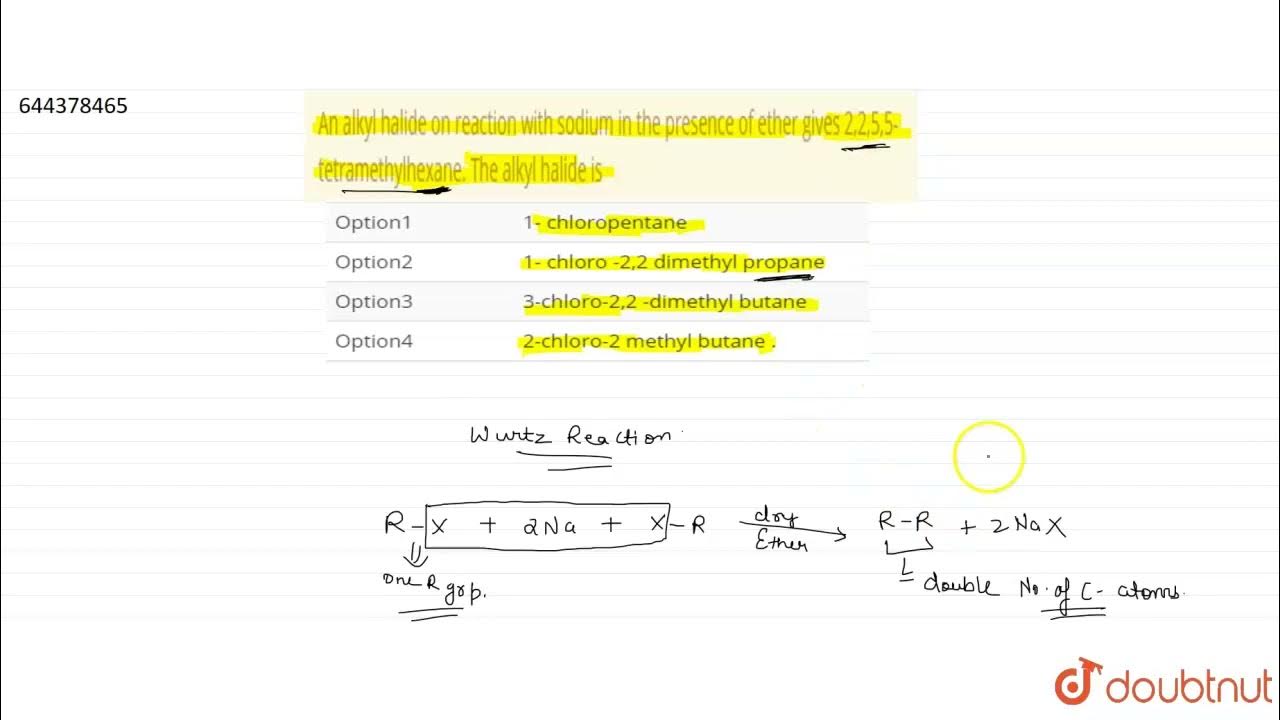 644378465
An alkyl halide on reaction with sodium in the presence of ether gives 2,2,5,5-
tetramethylhexane. The alkyl halide is
Option1 1- chloropentane
Option2 1- chloro -2,2 dimethyl propane
Option3 3-chloro-2,2 -dimethyl butane
Option4 2-chloro-2 methyl butane .
Wurtz Reaction
R-X + 2Na + X-R dry Ether R-R + 2NaX
One R grp.
double No. of C- atoms.
doubtnut